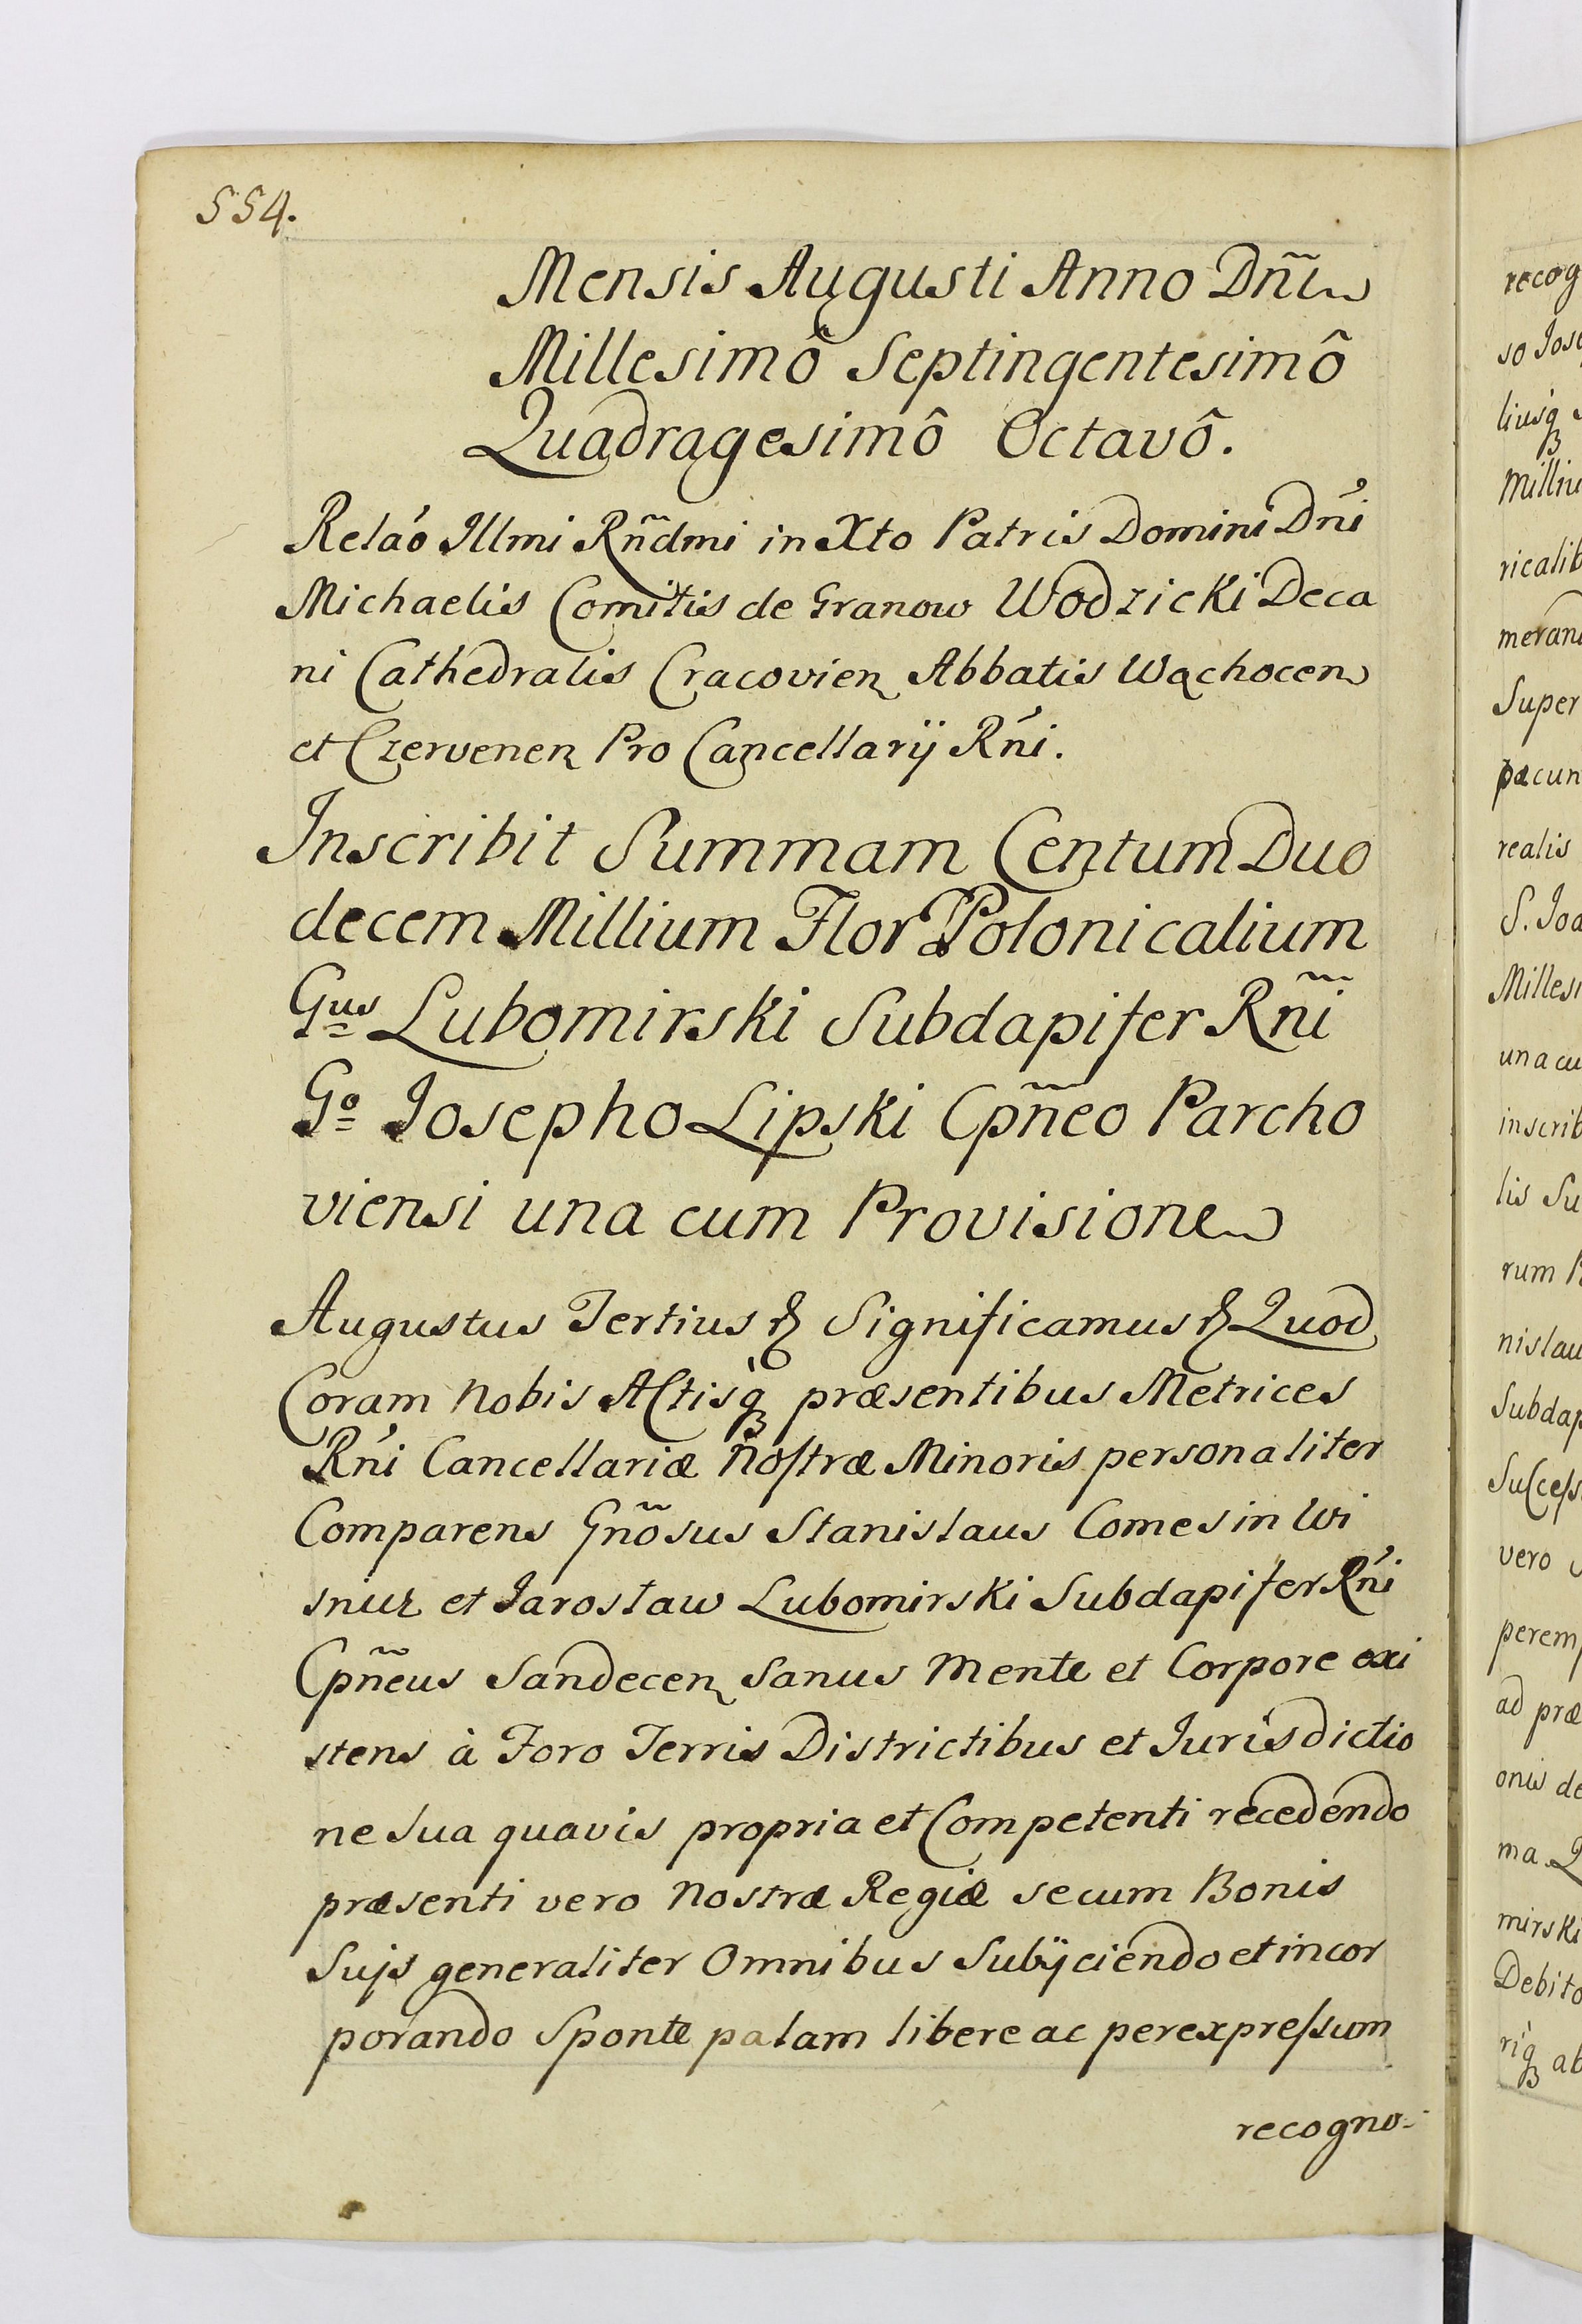 554.
Mensis Augusti Anno Dñi
Millesimô Septingentesimô
Quadragesimô Octavô.
Reláo Illmi Rñdmi in Xto Patris Domini Dñi
Michaelis Comitis de Granow Wodzicki Deca
ni Cathedralis Cracovien Abbatis Wąchocen
et Czervenen Pro Cancellarij Rńi.
Inscribit Summam Centum Duo
decem Millium Flor Polonicalium
Gus Lubomirski Subdapifer Rñi
Go Josepho Lipski Cpñeo Parcho
viensi una cum Provisione
Augustus Tertius & Significamus & Quod
Coram Nobis Actisq præsentibus Metrices
Rńi Cancellariæ Nostræ Minoris personaliter
Comparens Gñosus Stanislaus Comes in Wi
snicz et Jarosław Lubomirski Subdapifer Rńi
Cpñeus Sandecen Sanus Mente et Corpore exi
stens à Foro Terris Districtibus et Jurisdictio
ne sua quavis propria et Competenti recedendo
præsenti vero Nostræ Regiæ secum Bonis
Sujs generaliter Omnibus Subijciendo et incor
porando Sponte palam libere ac per expressum
recogno-
recog
so Jos
liusq
Milliu
ricalib
meran
Super
pæcun
realis
S. Joa
Millesi
una cu
inscrib
lis Su
rum P
nislau
Subdap
Success
vero
perem
ad præ
onis de
ma Q
mirski
Debito
riq ab